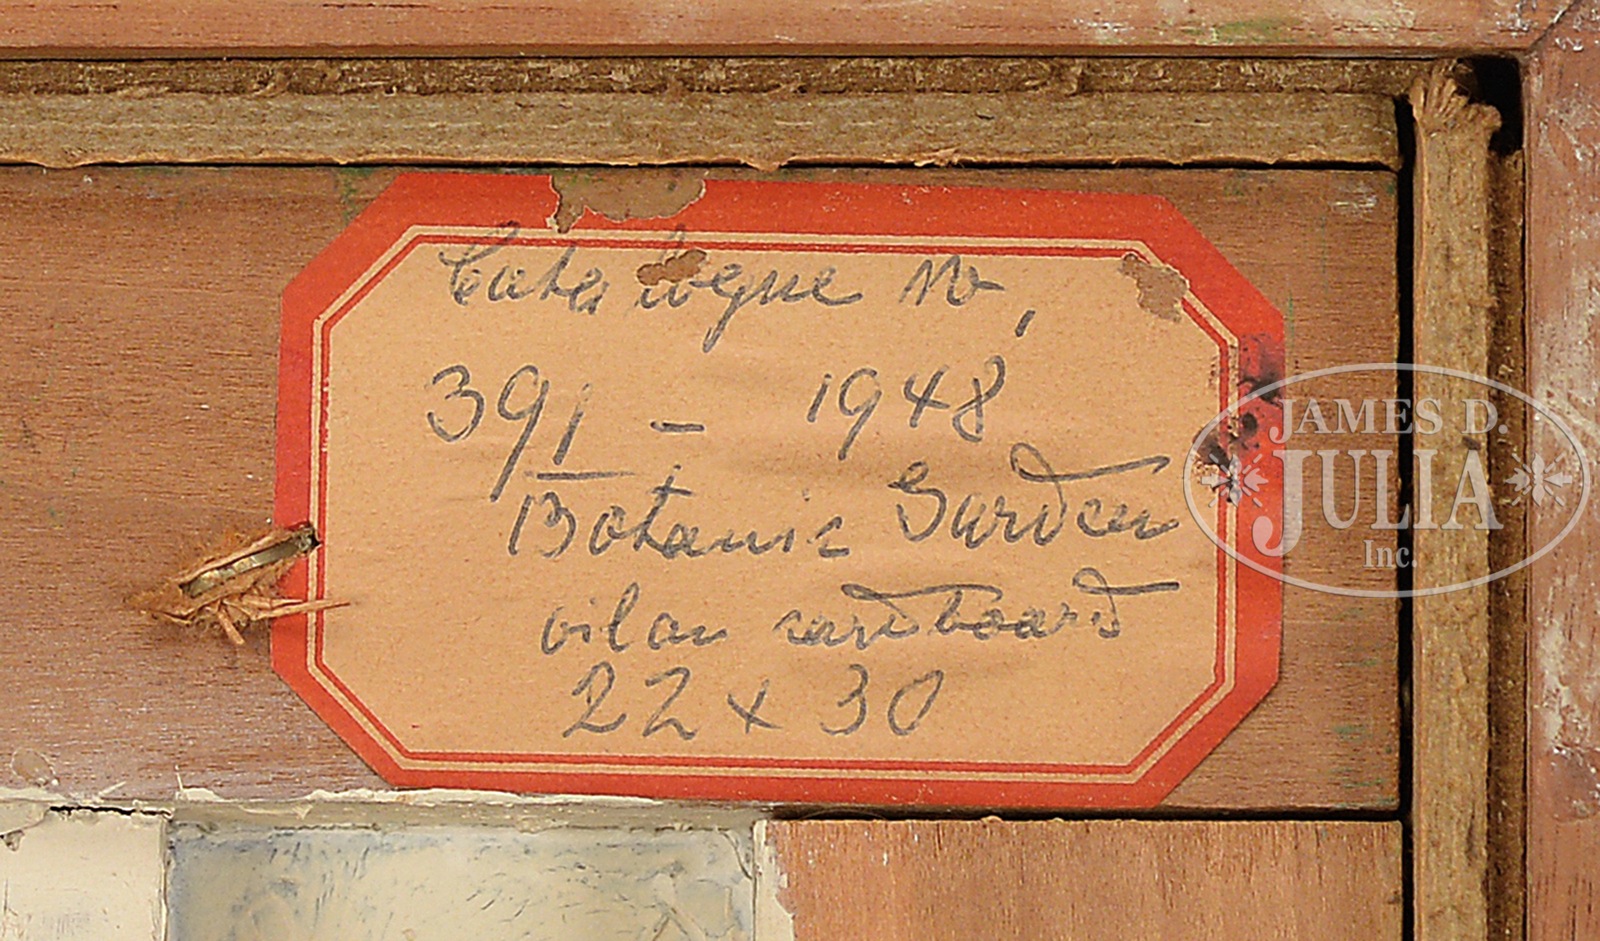 Catalogue No,
391 - 1948
Botanic Garden
oil on cardboard
22 x 30
JAMES D.
JULIA
Inc.